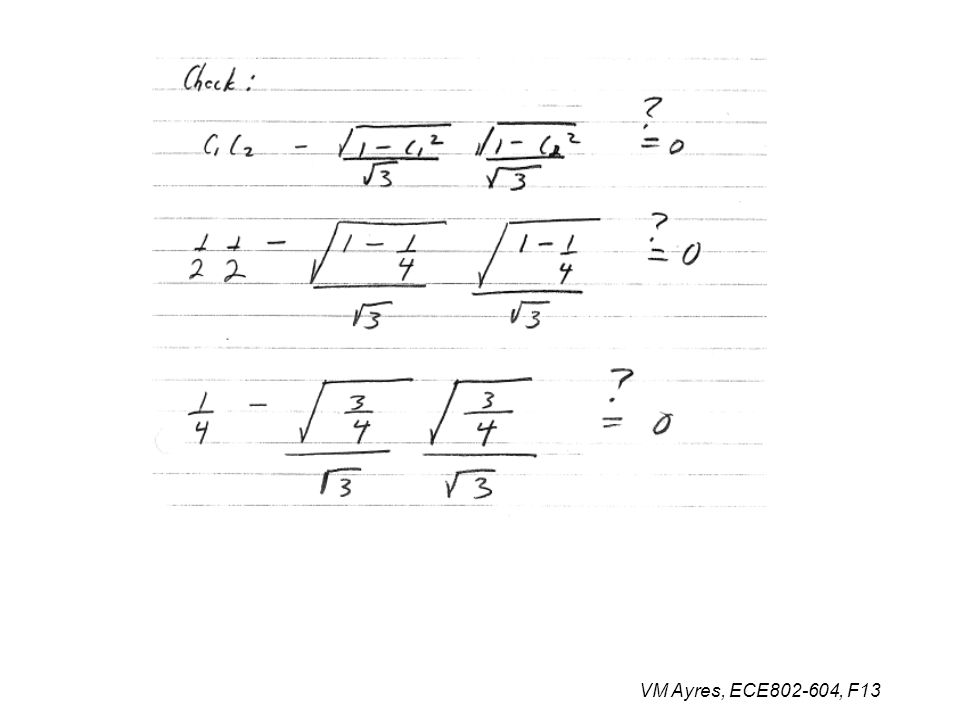 Check:
C₁C₂ - √(1 - C₁²)/√3 √(1 - C₂²)/√3 ?= 0
1/2 1/2 - √(1 - 1/4)/√3 √(1 - 1/4)/√3 ?= 0
1/4 - √(3/4)/√3 √(3/4)/√3 ?= 0
VM Ayres, ECE802-604, F13